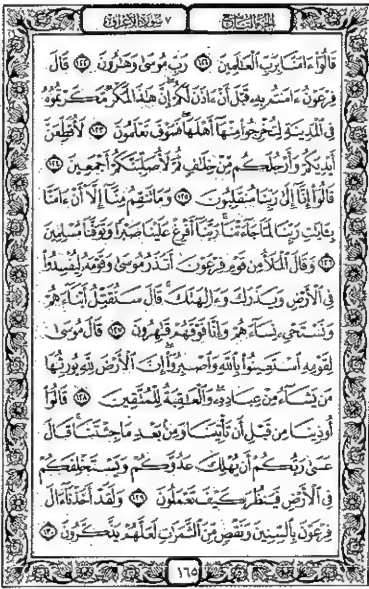 الجزء التاسع
٧ سورة الأعراف
قَالُوٓا۟ ءَامَنَّا بِرَبِّ ٱلْعَـٰلَمِينَ ١٢١ رَبِّ مُوسَىٰ وَهَـٰرُونَ ١٢٢ قَالَ
فِرْعَوْنُ ءَامَنتُم بِهِۦ قَبْلَ أَنْ ءَاذَنَ لَكُمْ إِنَّ هَـٰذَا لَمَكْرٌ مَّكَرْتُمُوهُ
فِى ٱلْمَدِينَةِ لِتُخْرِجُوا۟ مِنْهَآ أَهْلَهَا فَسَوْفَ تَعْلَمُونَ ١٢٣ لَأُقَطِّعَنَّ
أَيْدِيَكُمْ وَأَرْجُلَكُم مِّنْ خِلَـٰفٍ ثُمَّ لَأُصَلِّبَنَّكُمْ أَجْمَعِينَ ١٢٤
قَالُوٓا۟ إِنَّآ إِلَىٰ رَبِّنَا مُنقَلِبُونَ ١٢٥ وَمَا تَنقِمُ مِنَّآ إِلَّآ أَنْ ءَامَنَّا
بِـَٔايَـٰتِ رَبِّنَا لَمَّا جَآءَتْنَا رَبَّنَآ أَفْرِغْ عَلَيْنَا صَبْرًا وَتَوَفَّنَا مُسْلِمِينَ
١٢٦ وَقَالَ ٱلْمَلَأُ مِن قَوْمِ فِرْعَوْنَ أَتَذَرُ مُوسَىٰ وَقَوْمَهُۥ لِيُفْسِدُوا۟
فِى ٱلْأَرْضِ وَيَذَرَكَ وَءَالِهَتَكَ قَالَ سَنُقَتِّلُ أَبْنَآءَهُمْ
وَنَسْتَحْىِۦ نِسَآءَهُمْ وَإِنَّا فَوْقَهُمْ قَـٰهِرُونَ ١٢٧ قَالَ مُوسَىٰ
لِقَوْمِهِ ٱسْتَعِينُوا۟ بِٱللَّهِ وَٱصْبِرُوٓا۟ إِنَّ ٱلْأَرْضَ لِلَّهِ يُورِثُهَا
مَن يَشَآءُ مِنْ عِبَادِهِۦ وَٱلْعَـٰقِبَةُ لِلْمُتَّقِينَ ١٢٨ قَالُوٓا۟
أُوذِينَا مِن قَبْلِ أَن تَأْتِيَنَا وَمِنۢ بَعْدِ مَا جِئْتَنَا قَالَ
عَسَىٰ رَبُّكُمْ أَن يُهْلِكَ عَدُوَّكُمْ وَيَسْتَخْلِفَكُمْ
فِى ٱلْأَرْضِ فَيَنظُرَ كَيْفَ تَعْمَلُونَ ١٢٩ وَلَقَدْ أَخَذْنَآ ءَالَ
فِرْعَوْنَ بِٱلسِّنِينَ وَنَقْصٍ مِّنَ ٱلثَّمَرَٰتِ لَعَلَّهُمْ يَذَّكَّرُونَ ١٣٠
١٦٥